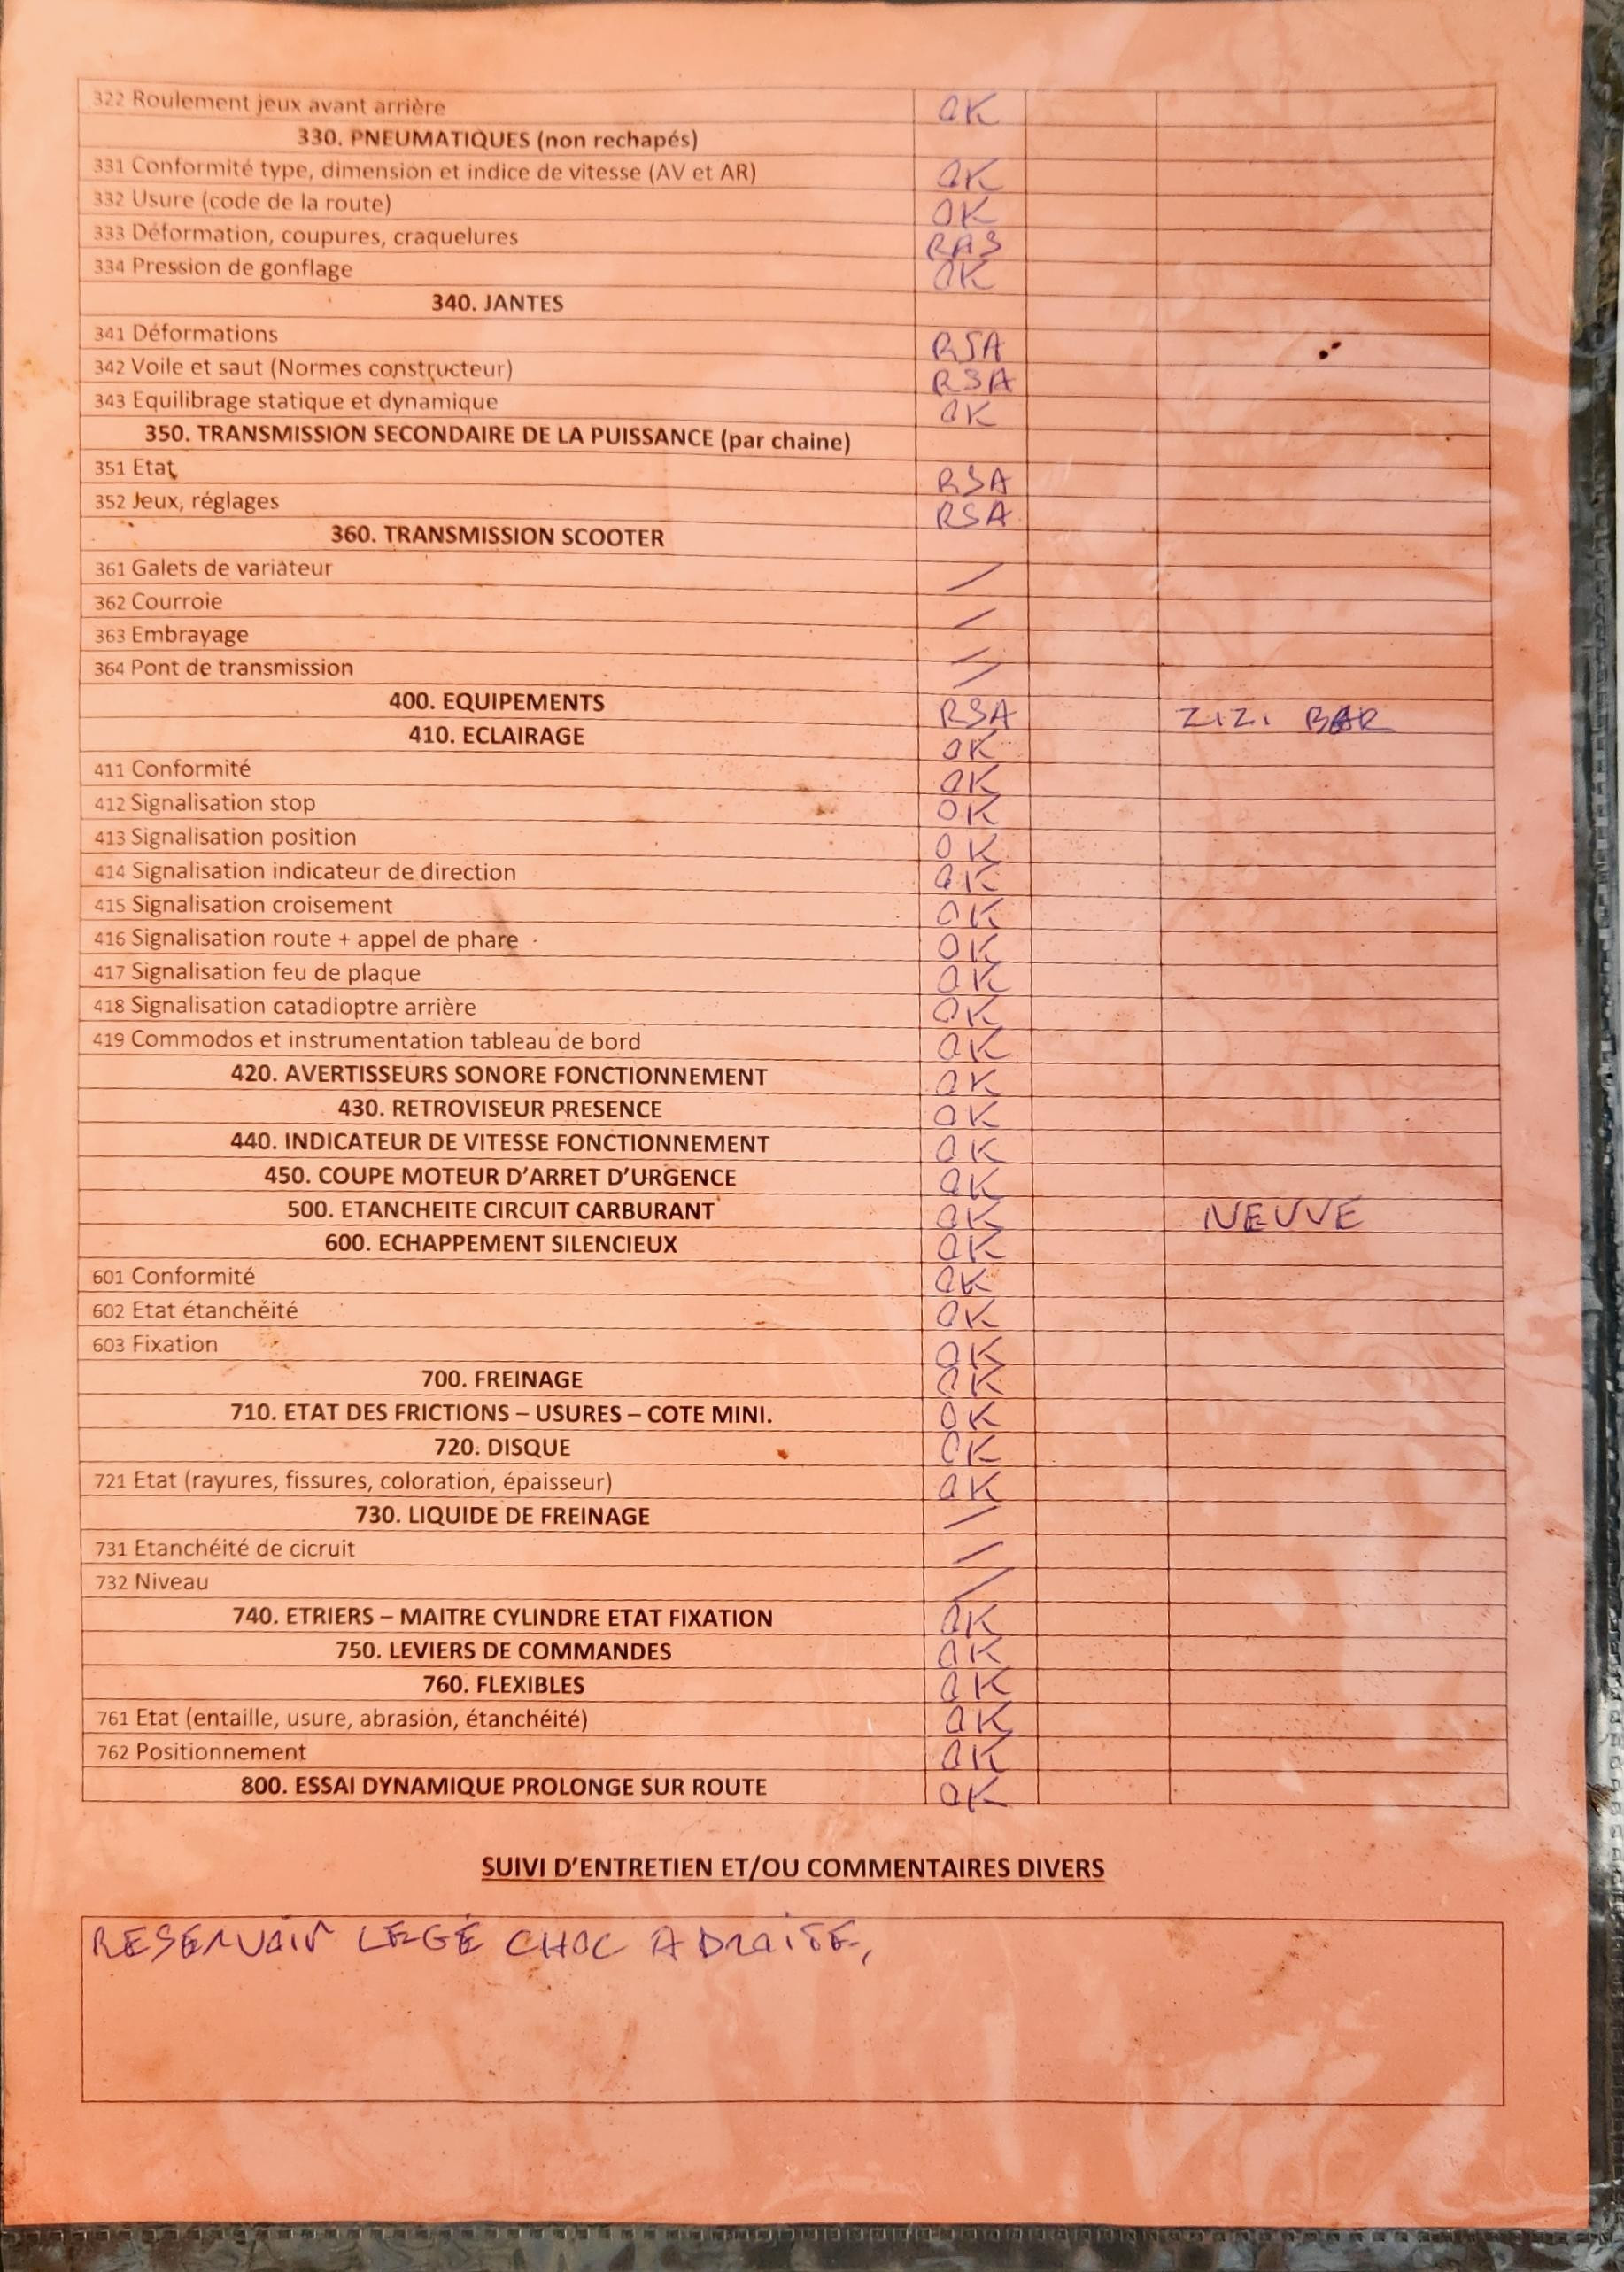 322 Roulement jeux avant arrière OK
330. PNEUMATIQUES (non rechapés)
331 Conformité type, dimension et indice de vitesse (AV et AR) OK
332 Usure (code de la route) OK
333 Déformation, coupures, craquelures RAS
334 Pression de gonflage OK
340. JANTES
341 Déformations RSA
342 Voile et saut (Normes constructeur) RSA
343 Equilibrage statique et dynamique OK
350. TRANSMISSION SECONDAIRE DE LA PUISSANCE (par chaine)
351 Etat RSA
352 Jeux, réglages RSA
360. TRANSMISSION SCOOTER
361 Galets de variateur /
362 Courroie /
363 Embrayage /
364 Pont de transmission /
400. EQUIPEMENTS RSA ZIZI BAR
410. ECLAIRAGE OK
411 Conformité OK
412 Signalisation stop OK
413 Signalisation position OK
414 Signalisation indicateur de direction OK
415 Signalisation croisement OK
416 Signalisation route + appel de phare OK
417 Signalisation feu de plaque OK
418 Signalisation catadioptre arrière OK
419 Commodos et instrumentation tableau de bord OK
420. AVERTISSEURS SONORE FONCTIONNEMENT OK
430. RETROVISEUR PRESENCE OK
440. INDICATEUR DE VITESSE FONCTIONNEMENT OK
450. COUPE MOTEUR D'ARRET D'URGENCE OK
500. ETANCHEITE CIRCUIT CARBURANT OK NEUVE
600. ECHAPPEMENT SILENCIEUX OK
601 Conformité OK
602 Etat étanchéité OK
603 Fixation OK
700. FREINAGE OK
710. ETAT DES FRICTIONS – USURES – COTE MINI. OK
720. DISQUE OK
721 Etat (rayures, fissures, coloration, épaisseur) OK
730. LIQUIDE DE FREINAGE /
731 Etanchéité de cicruit /
732 Niveau /
740. ETRIERS – MAITRE CYLINDRE ETAT FIXATION OK
750. LEVIERS DE COMMANDES OK
760. FLEXIBLES OK
761 Etat (entaille, usure, abrasion, étanchéité) OK
762 Positionnement OK
800. ESSAI DYNAMIQUE PROLONGE SUR ROUTE OK
SUIVI D'ENTRETIEN ET/OU COMMENTAIRES DIVERS
RESERVOIR LEGE CHOC A DROITE,